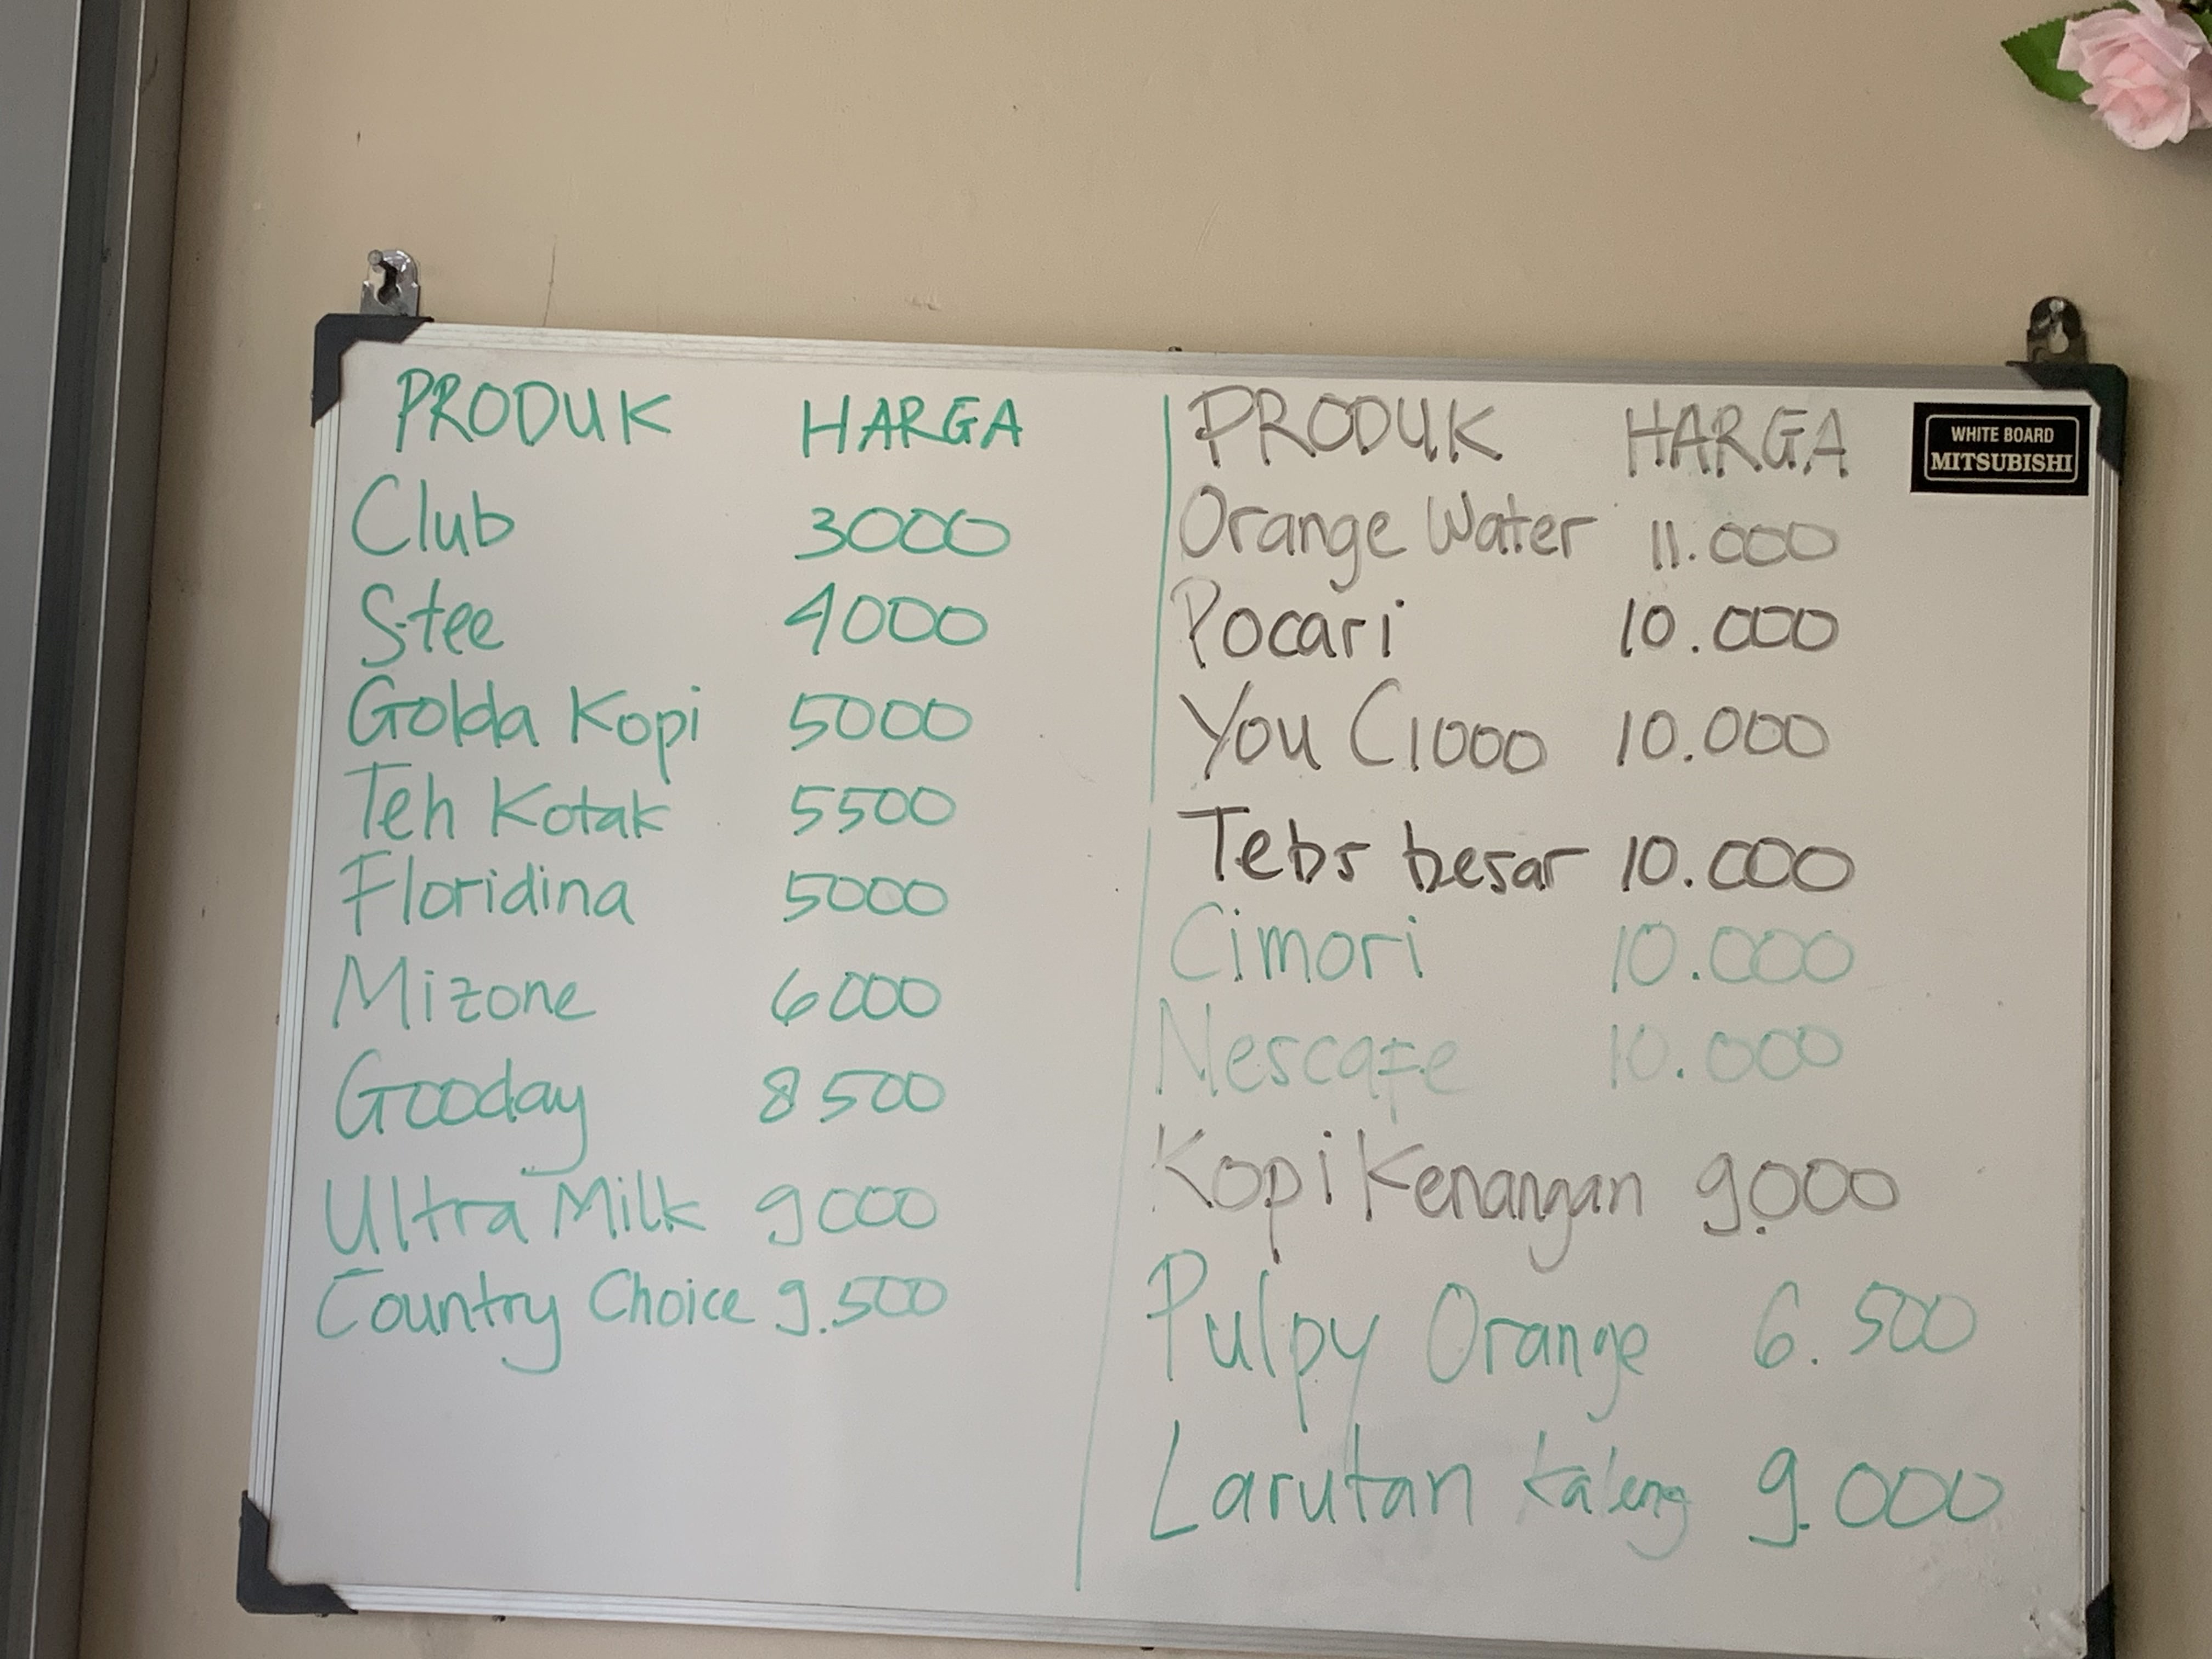 PRODUK HARGA
Club 3000
Stee 4000
Golda Kopi 5000
Teh Kotak 5500
Floridina 5000
Mizone 6000
Gooday 8500
Ultra Milk 9000
Country Choice 9.500
PRODUK HARGA
Orange Water 11.000
Pocari 10.000
You C1000 10.000
Tebs besar 10.000
Cimori 10.000
Nescafe 10.000
Kopi Kenangan 9.000
Pulpy Orange 6.500
Larutan kaleng 9.000
WHITE BOARD
MITSUBISHI